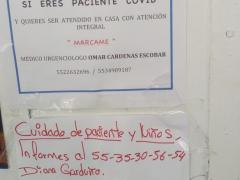 SI ERES PACIENTE COVID
Y QUIERES SER ATENDIDO EN CASA CON ATENCIÓN
INTEGRAL
" MARCAME "
MEDICO URGENCIOLOGO OMAR CARDENAS ESCOBAR
5522632696 / 5534989187
Cuidado de paciente y Niños.
Informes al 55-35-30-56-54
Diana Garduño.